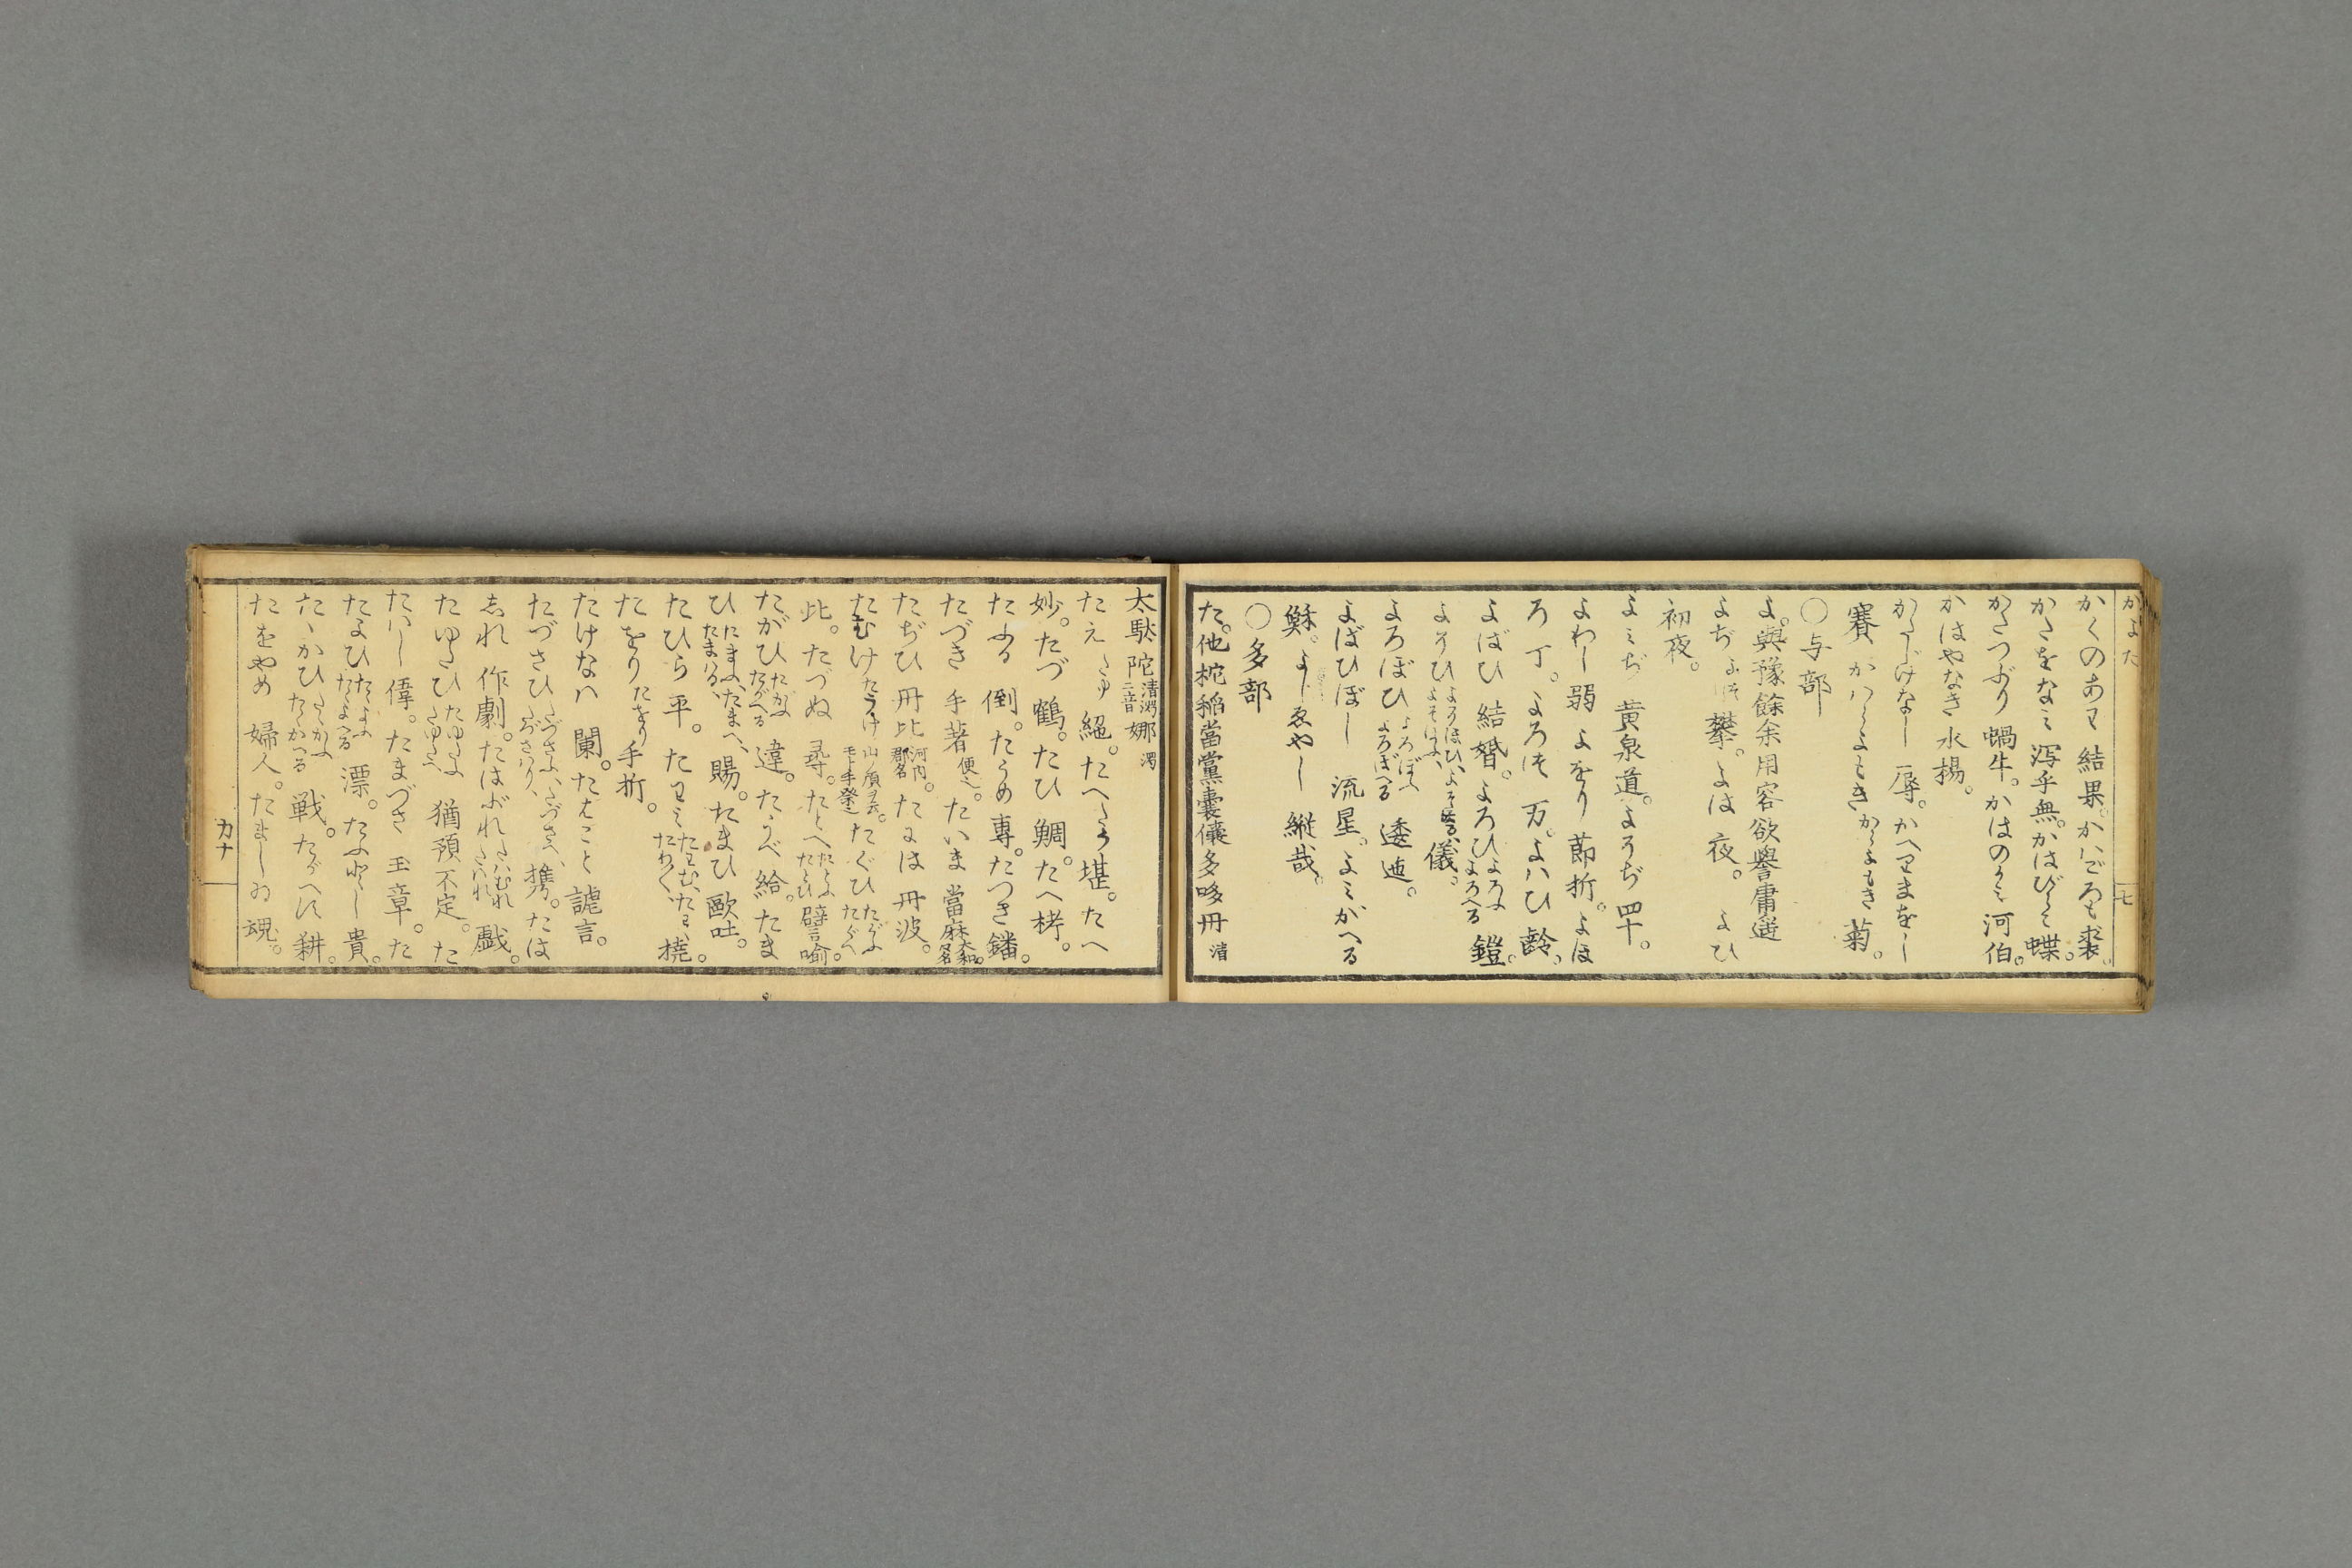 かよた
かくのあわ 結果。かはごろも裘。
かたをなみ 瀉乎無。かはびらこ 蝶。
かたつぶり 蝸牛。かはのかみ 河伯。
かはやなき 水楊。
かたじけなし 辱。かへりまをし
賽 かはらよもき からよもき 菊。
〇与部
よ。與豫餘余用容欲譽庸遥
よぢ よづ 攀。よは 夜。よひ
初夜。
よみぢ 黄泉道。よそぢ 四十。
よわし 弱 よをり 節折。よほ
ろ 丁。よろづ 万。よはひ 齢。
よばひ 結婚。よろひ よろふ よろへる 鎧。
よそひ 儀。
よろぼひ よろぼへ よろぼへる 逶迤。
よばひぼし 流星。よみがへる
穌。よしゑやし 縦哉。
〇多部
た。他柁稲當黨嚢儀多哆丹 清
太駄 陀 清濁二音 娜 濁
たえ たゆ 絶。たへ たふ 堪。たへ
妙。たづ 鶴。たひ 鯛。たへ 栲。
たふる 倒。たうめ 專。たつき 鐇。
たづき 手著 便也。たいま 當麻 大和名
たぢひ 丹比 河内郡名。たには 丹波。
たむけ たうげ たぐひ たぐふ たぐへ
比。たづぬ 尋。たとへ たとふ たとひ 譬喩。
たがひ たがふ たがへる 違。たうべ 給。たま
ひ たまふ、たまへ、たまはる、賜。たまひ 歐吐。
たひら 平。たわみ たわむ、たわわ、たわく、 橈。
たをり たをり 手折。
たけなは 闌。たはこと 謔言。
たづさひ たづさふ、たづさへ、たづさはり、 携。たは
ふれ 作劇。たはぶれ たはむれ たはれ 戯。
たゆたひ たゆたふ たゆたへ 猶預不定。た
たはし 偉。たまづさ 玉章。た
たよひ たよふ たよへる 漂。たふとし 貴。
たゝかひ たゝかふ たゝかへる 戦。たがへす 耕。
たをやめ 婦人。たましゐ 魂。
カナ